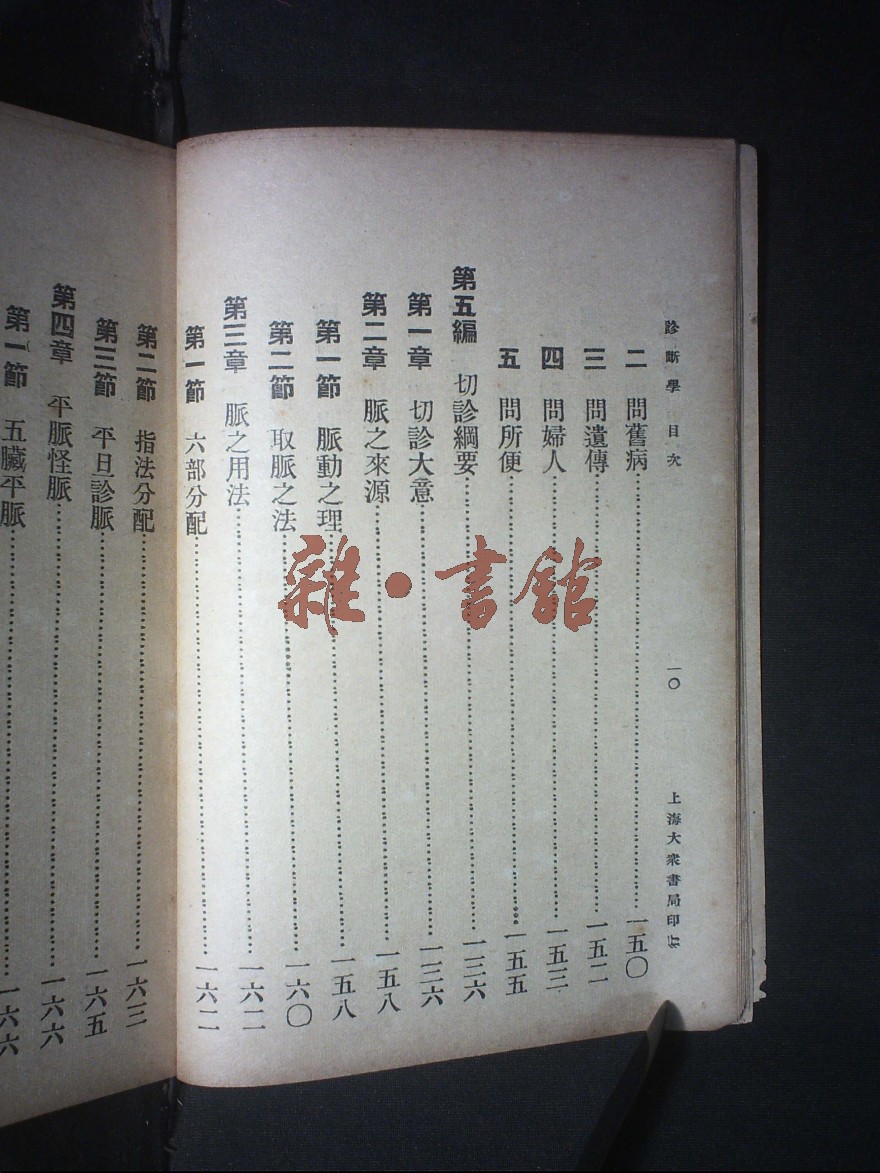 診斷學 目次 一〇 上海大衆書局印
二 問舊病 一五〇
三 問遺傳 一五二
四 問婦人 一五三
五 問所便 一五五
第五編 切診綱要 一三六
第一章 切診大意 一三六
第二章 脈之來源 一五八
第一節 脈動之理 一五八
第二節 取脈之法 一六〇
第三章 脈之用法 一六二
第一節 六部分配 一六二
第二節 指法分配 一六三
第三節 平旦診脈 一六五
第四章 平脈怪脈 一六六
第一節 五臟平脈 一六六
雜·書館